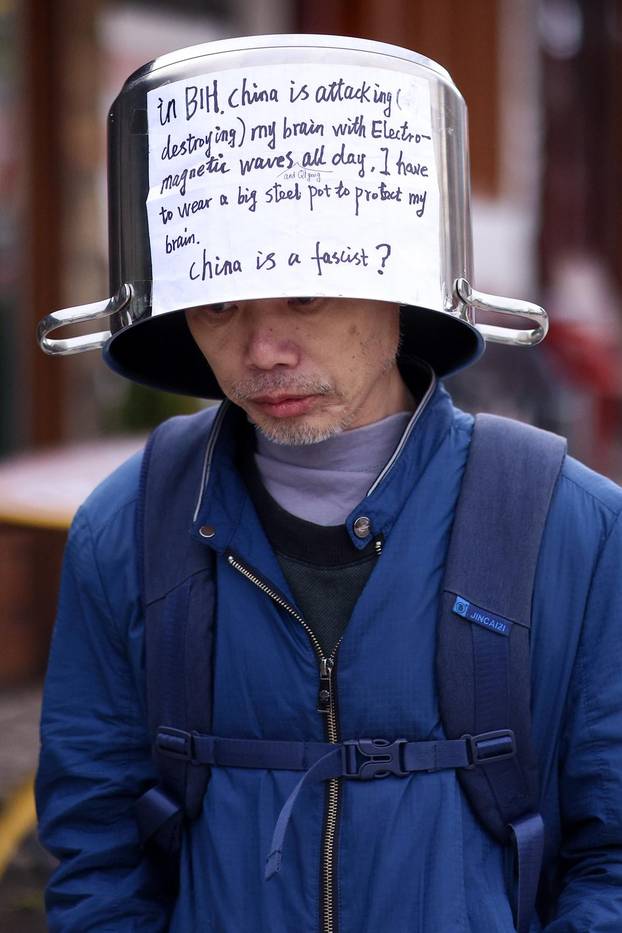 in BIH. China is attacking(
destroying) my brain with Electro-
magnetic waves all day, I have
and Qigong
to wear a big steel pot to protect my
brain.
China is a fascist?
JINCAIZI